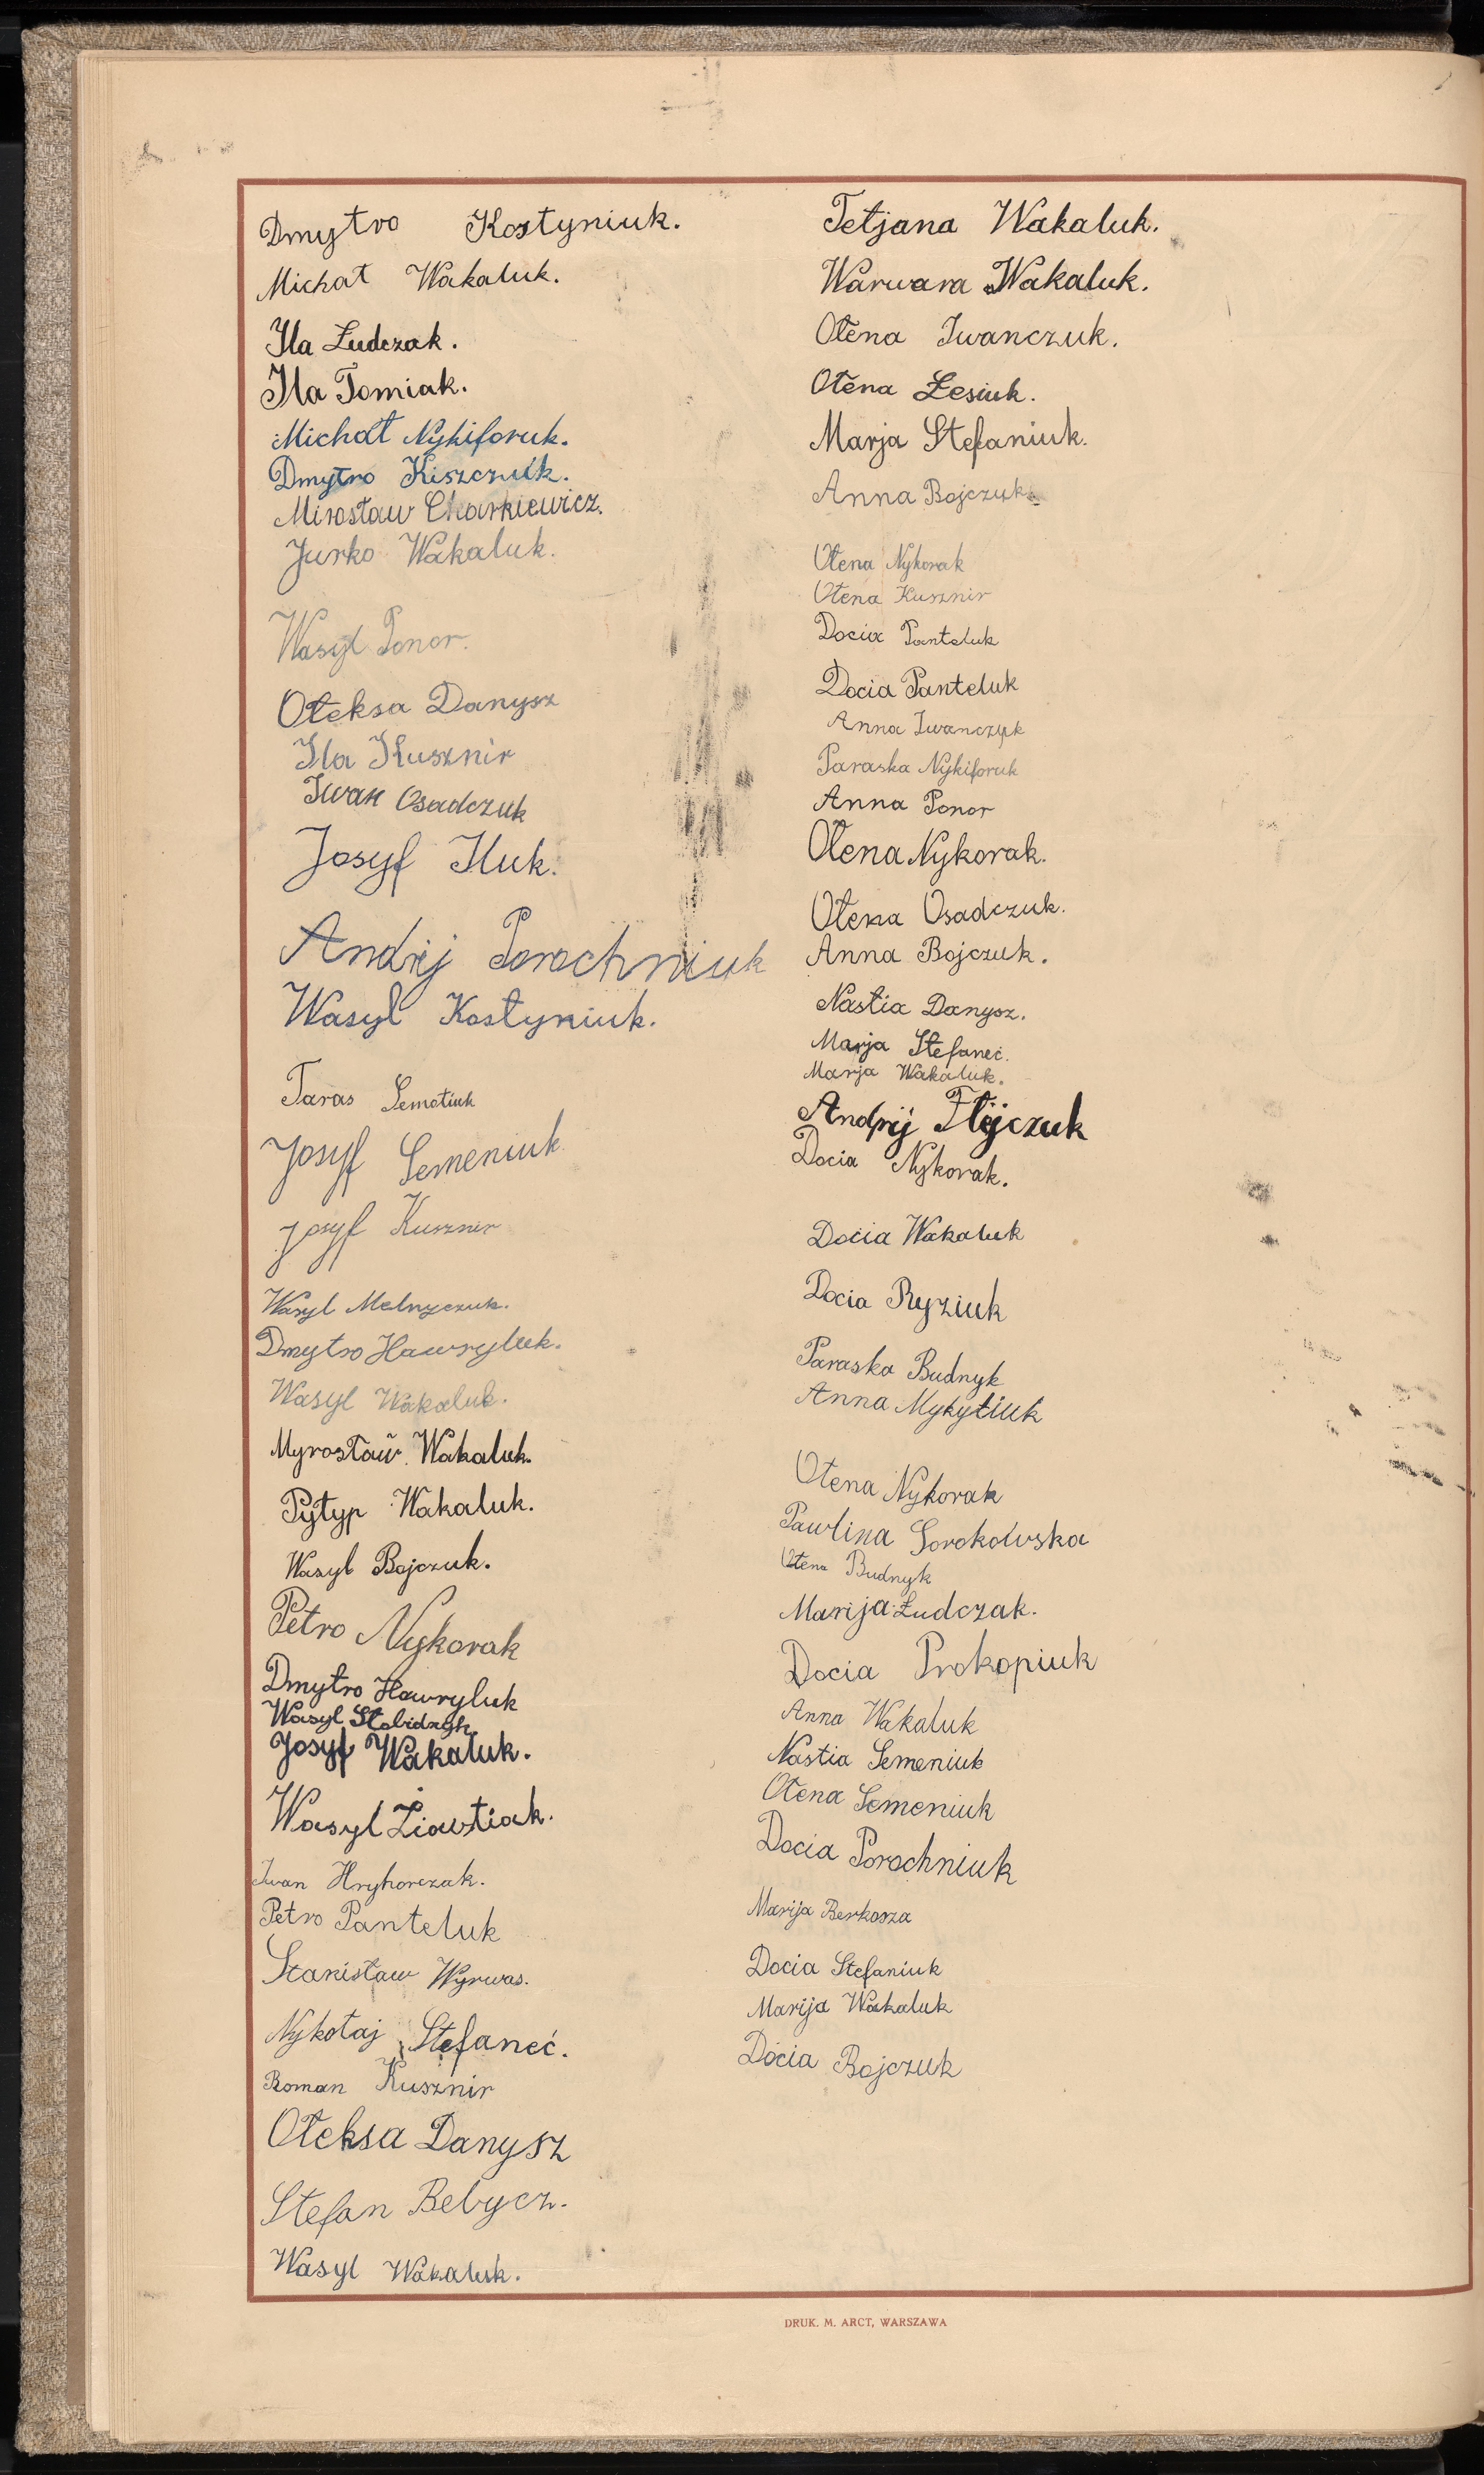 Dmytro Kostyniuk.
Michał Wakaluk.
Ila Łudczak.
Ila Tomiak.
Michał Nykiforuk.
Dmytro Kiszczuk.
Mirosław Charkiewicz.
Jurko Wakaluk.
Wasyl Ponor.
Ołeksa Danysz
Ila Kusznir
Iwan Osadczuk
Josyf Iluk.
Andrij Porochniuk
Wasyl Kostyniuk.
Taras Semotiuk
Josyf Semeniuk
Josyf Kusznir
Wasyl Melnyczuk.
Dmytro Hawryluk.
Wasyl Wakaluk.
Myrosław Wakaluk.
Pyłyp Wakaluk.
Wasyl Bojczuk.
Petro Nykorak
Dmytro Hawryluk
Wasyl
Josyf Wakaluk.
Wasyl
Iwan Hryhorczak.
Petro Panteluk
Stanisław Wyrwas.
Nykołaj Stefaneć.
Roman Kusznir
Ołeksa Danysz
Stefan Bebycz.
Wasyl Wakaluk.
Tetjana Wakaluk.
Warwara Wakaluk.
Ołena Iwanczuk.
Ołena Łesiuk.
Marja Stefaniuk.
Anna Bojczuk.
Ołena Nykorak
Ołena Kusznir
Docia Panteluk
Docia Panteluk
Anna Iwanczuk
Paraska Nykiforuk
Anna Ponor
Ołena Nykorak.
Ołena Osadczuk.
Anna Bojczuk.
Nastia Danysz.
Marja Stefaneć.
Marja Wakaluk.
Andrij
Docia Nykorak.
Docia Wakaluk
Docia Ryziuk
Paraska Budnyk
Anna Mykytiuk
Ołena Nykorak
Pawlina Sorokowska
Ołena Budnyk
Marija Łudczak.
Docia Prokopiuk
Anna Wakaluk
Nastia Semeniuk
Ołena Semeniuk
Docia Porochniuk
Marija Berkosza
Docia Stefaniuk
Marija Wakaluk
Docia Bojczuk
DRUK. M. ARCT, WARSZAWA